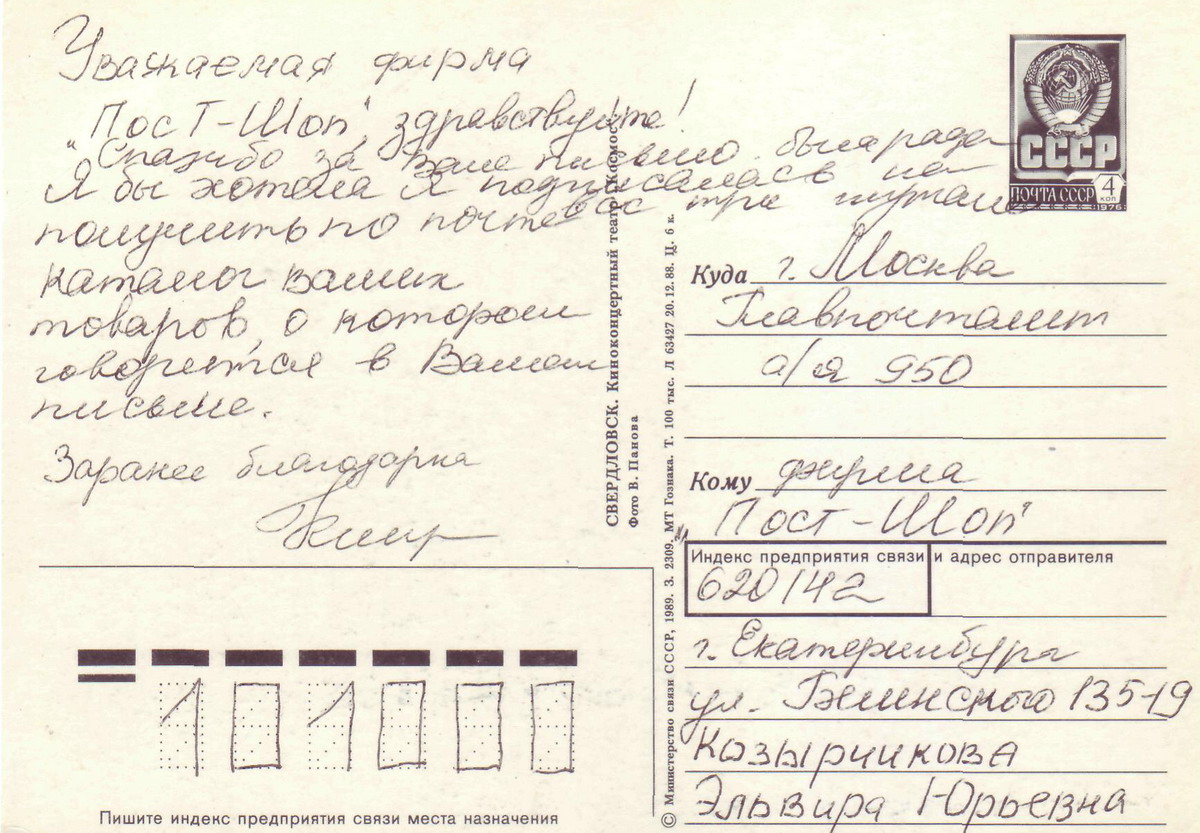 Уважаемая фирма
"Пост-Шоп", здравствуйте!
Спазибо за Ваше письмо. была рада
Я подписалась на
Вас три журнала
Я бы хотела
получить по почте
каталог Ваших
товаров, о котором
говорится в Вашем
письме.
Заранее благодарна
СВЕРДЛОВСК. Киноконцертный театр «Космос»
Фото В. Панова
© Министерство связи СССР, 1989. З. 2309. МТ Гознака. Т. 100 тыс. Л 63427 20.12.88. Ц. 6 к.
СССР
ПОЧТА СССР
4 КОП
1976
Куда г. Москва
Главпочтамт
а/я 950
Кому фирма
"Пост-Шоп"
Индекс предприятия связи и адрес отправителя
620142
г. Екатеринбург
ул. Белинского 135-19
Козырчикова
Эльвира Юрьевна
101000
Пишите индекс предприятия связи места назначения